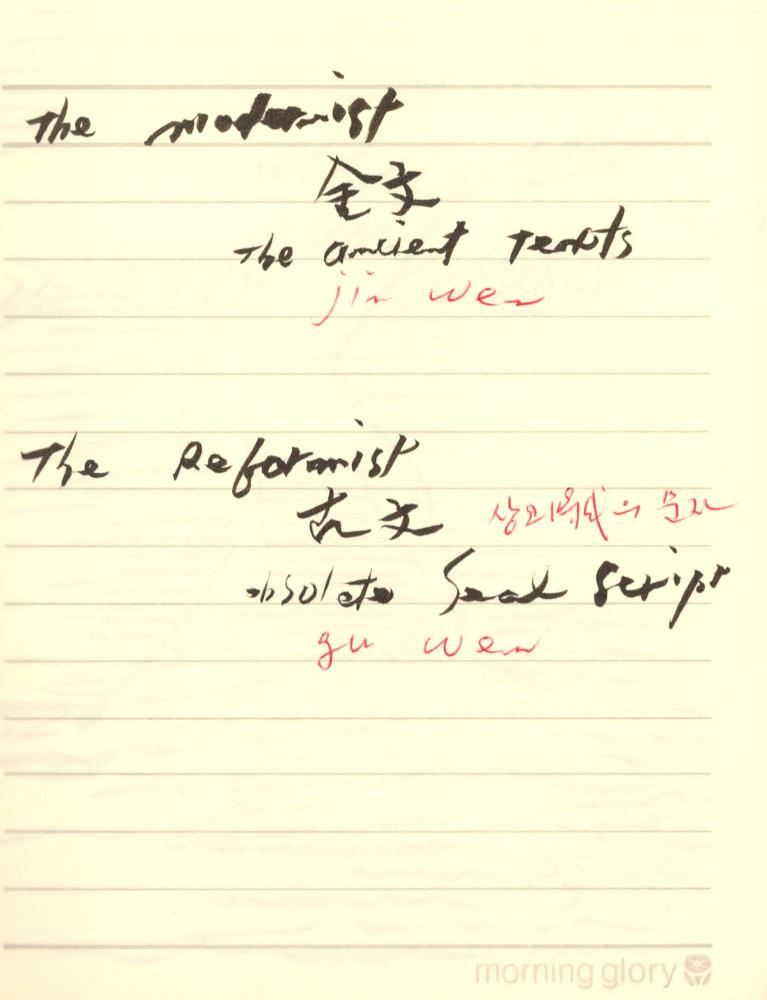 The modernist
金文
The ancient texts
jin wen
The Reformist
古文 의 문자
obsolete Seal Script
gu wen
morning glory